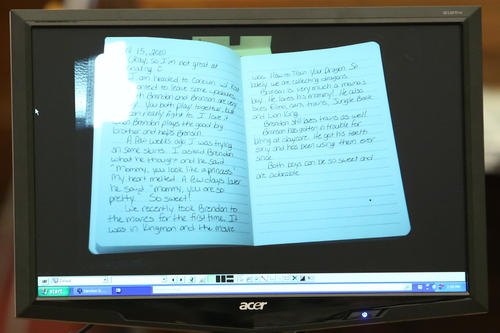 15, 2010
Okay, so I'm not great at
I am headed to Cancun
wanted to leave some updates.
Both Brendon and Branson are very
You both play together, but
can really fight to. I love it
when Brendon plays the good big
brother and helps Branson.
A few weeks ago I was trying
on some skirts. I asked Brendon
what he thought and he said
"Mommy, you look like a princess"
My heart melted. A few days later
he said "mommy, you are so
pretty." So sweet!
We recently took Brendon to
the movies for the first time. It
was in Kingman and the movie
was How to Train Your Dragon. So
lately we are collecting dragons.
Branson is very much a mama's
boy. He loves his mommy! He also
loves Elmo, cars, trains, Jungle Book
and Lion King.
Brendon still loves trains as well.
Branson has gotten in trouble for
biting at daycare. He got his teeth
early and has been using them ever
since.
Both boys can be so sweet and
are adorable.
start
acer